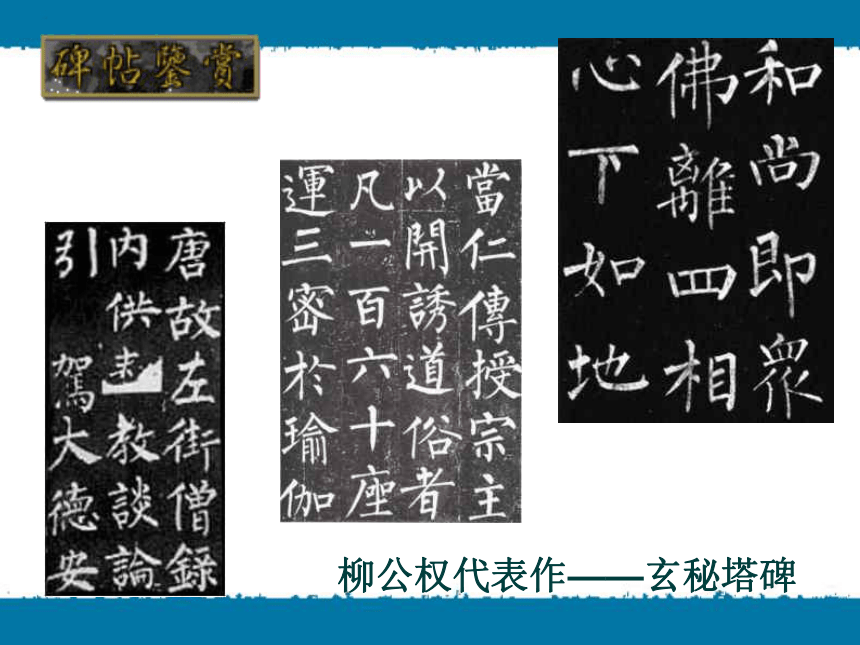 碑帖鑒賞
唐故左街僧錄
内供教談論
引駕大德安
當仁傳授宗主
以開誘道俗者
凡一百六十座
運三密於瑜伽
和尚即眾
佛離四相
心下如地
柳公权代表作——玄秘塔碑